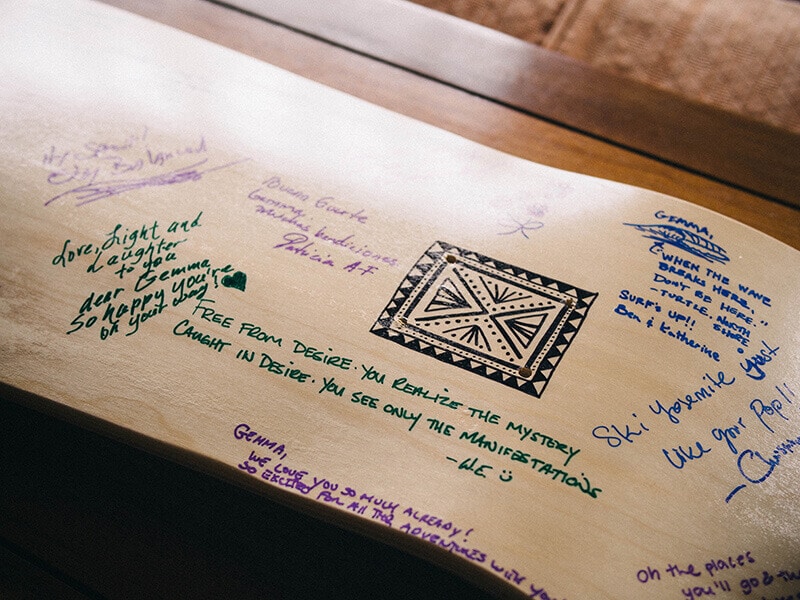 Buena Suerte
Gemma!
muchas bendiciones
Patricia A-F
Love, Light and
Laughter
to you
dear Gemma
So happy you're
on your way!
FREE FROM DESIRE. YOU REALIZE THE MYSTERY
CAUGHT IN DESIRE. YOU SEE ONLY THE MANIFESTATIONS
- W.E.
GEMMA,
"WHEN THE WAVE
BREAKS HERE,
DON'T BE HERE."
- TURTLE, NORTH
SHORE
SURF'S UP!!
Ben & Katherine
Ski Yosemite
like your Pop!!
GEMMA,
WE LOVE YOU SO MUCH ALREADY!
SO EXCITED FOR ALL THE ADVENTURES WITH
Oh the places
you'll go &